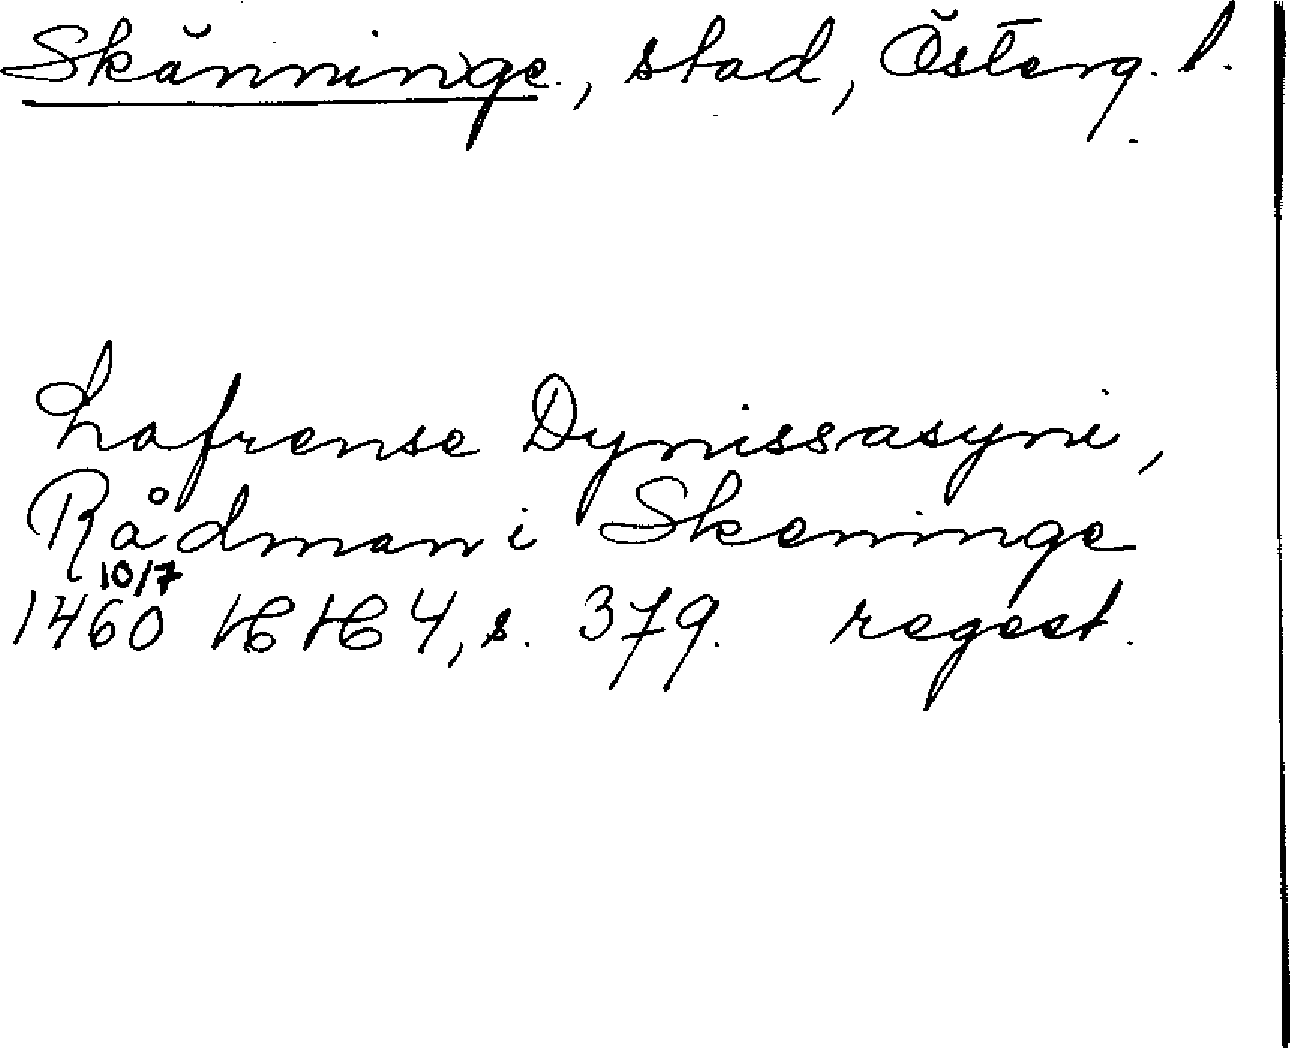 Skänninge, stad, Österg. l.
Lafrense Dynissasyni,
Rådman i Skeninge
10/7
1460 HH 4, s. 379. regest.